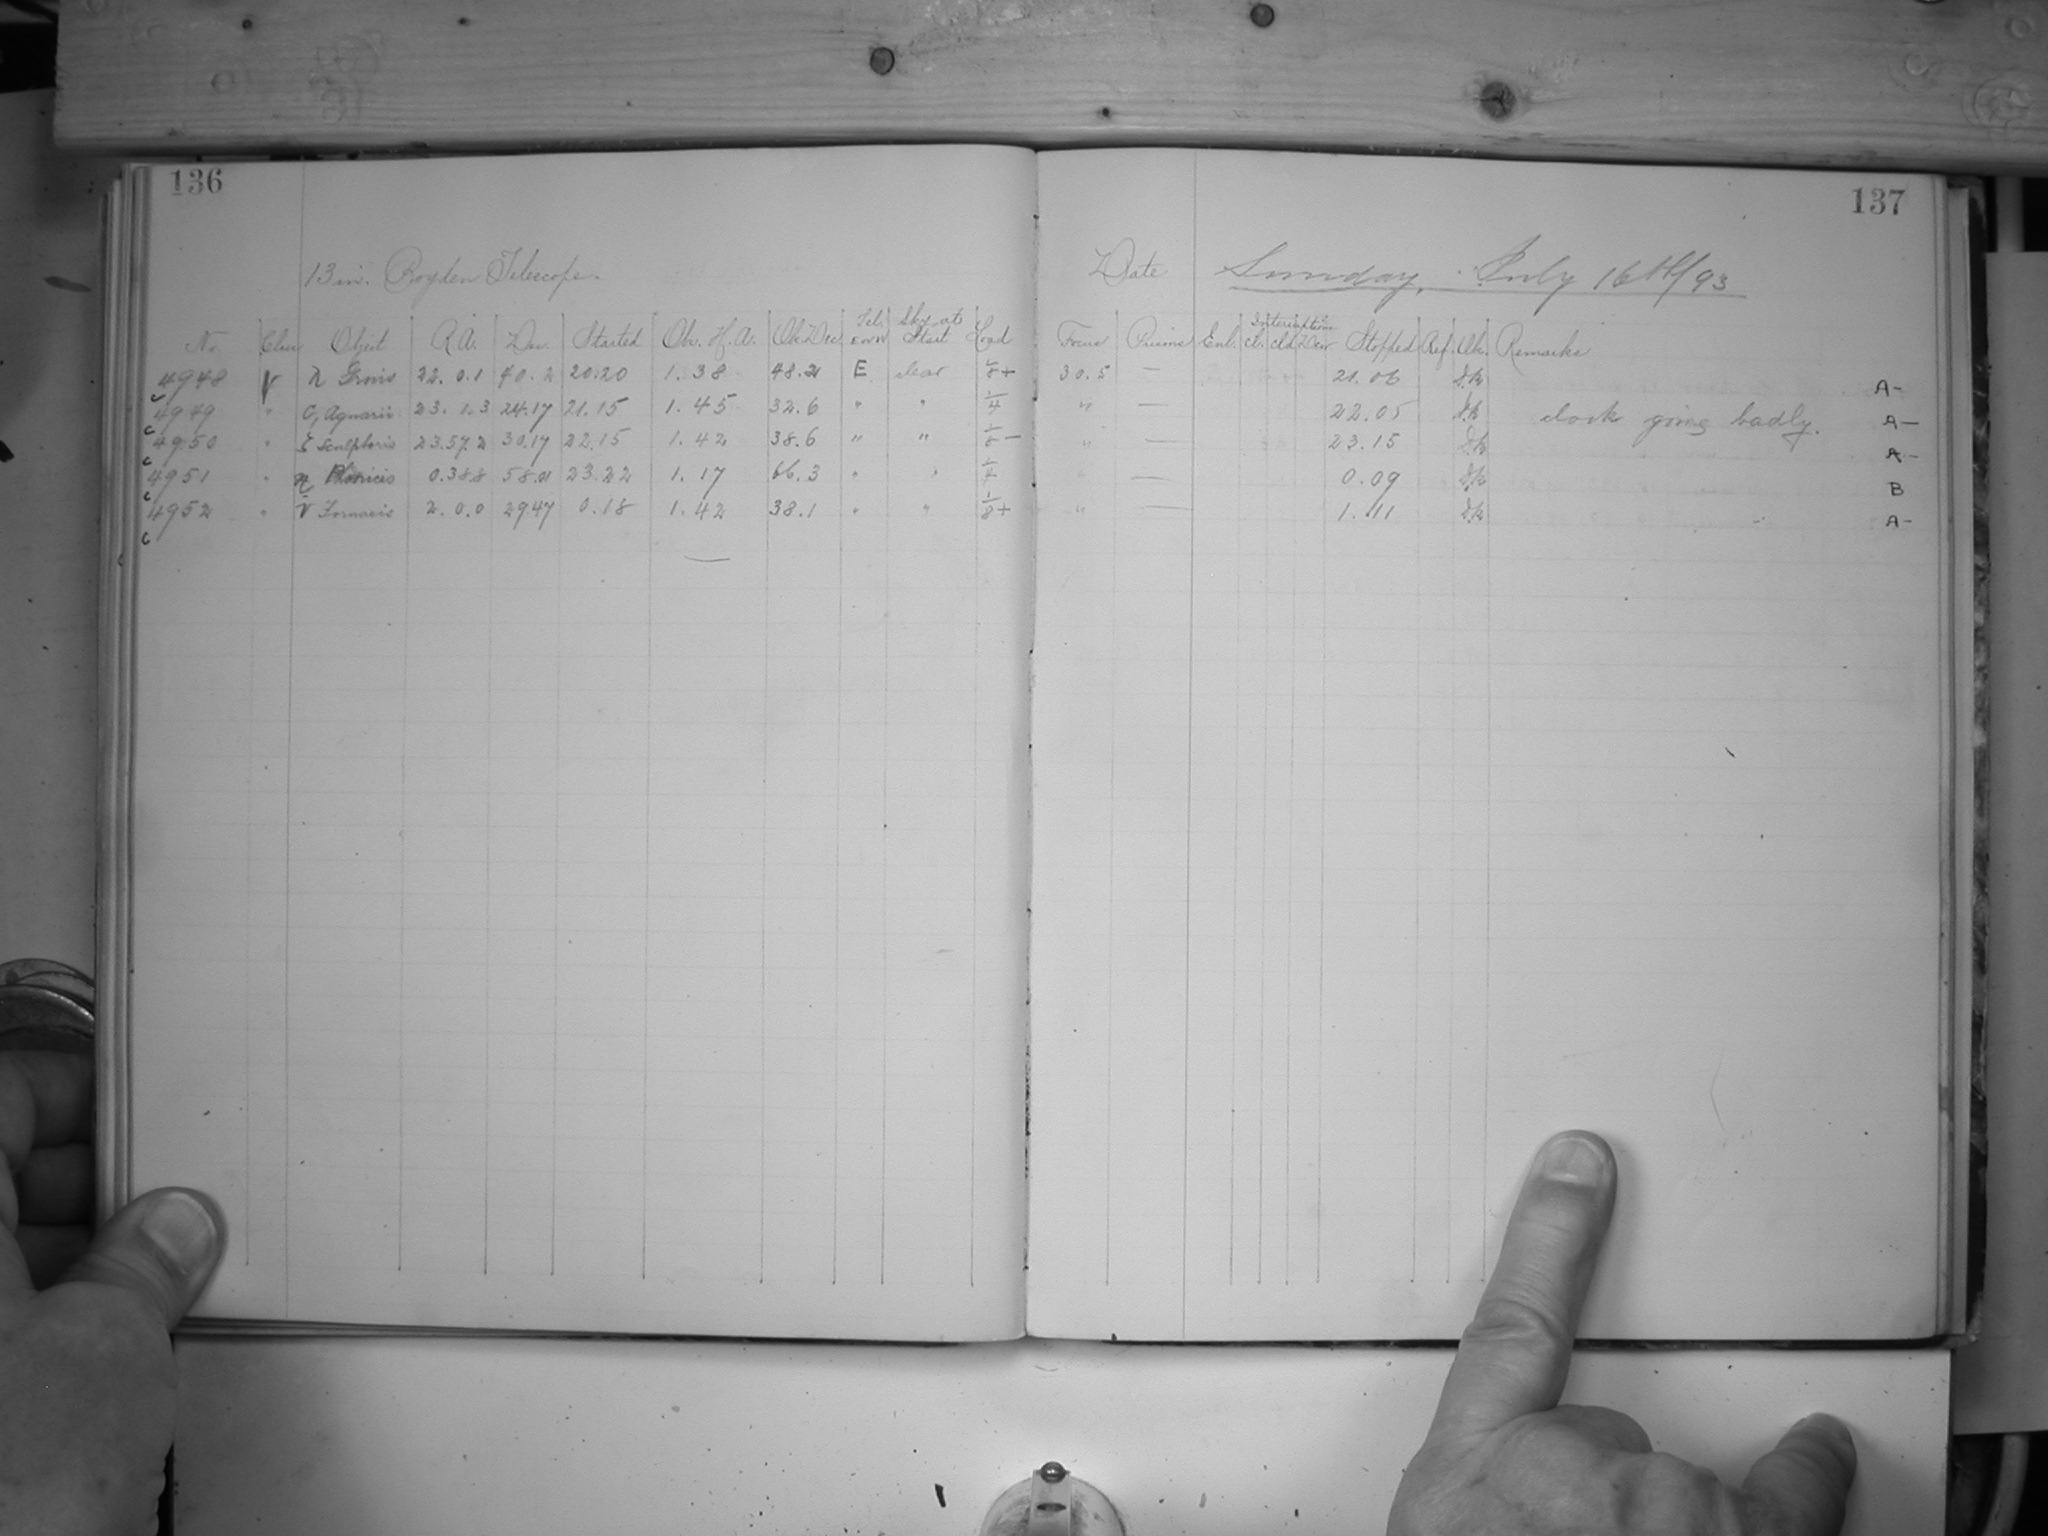 136
13 in. Boyden Telescope.
No. Class Object R.A. Dec. Started Ob. H.A. Ob. Dec Tel. E or W Sky at Start Load
4948 V λ Gruis 22. 0.1 40. 2 20.20 1. 38 48.2 E clear 1/8+
4949 " C, Aquarii 23. 1.3 24.17 21.15 1. 45 32.6 " " 1/4
4950 " ζ Sculptoris 23.57.2 30.17 22.15 1. 42 38.6 " " 1/8-
4951 " η 0.38.8 58.01 23.22 1. 17 66.3 " " 1/4
4952 " ν Fornacis 2. 0.0 29.47 0.18 1. 42 38.1 " " 1/8+
137
Date Sunday, July 16th/93
Focus Prisms Enl. Interruption Cl. Cld Dew Stopped Ref. Ob. Remarks
30.5 — 21.06 A-
" — 22.05 clock going badly. A-
" — 23.15 A-
" — 0.09 B
" — 1.11 A-